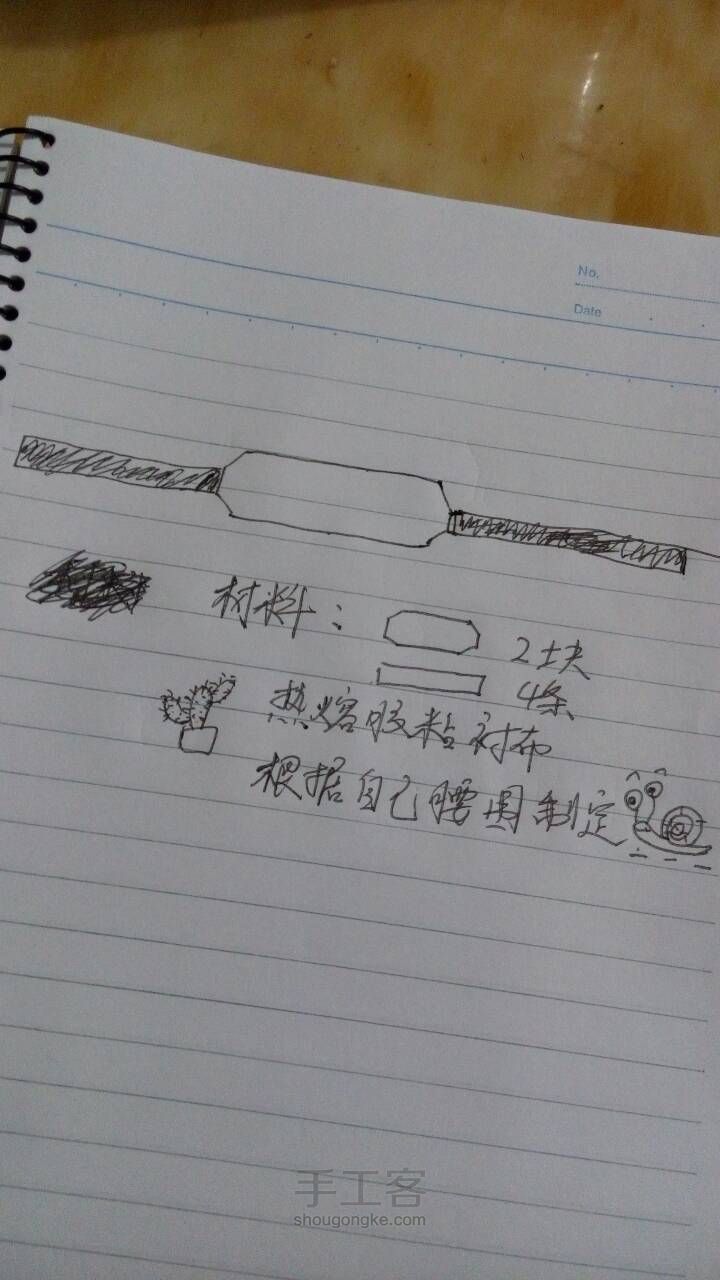 No.
Date
材料：
2块
4条
热熔胶粘衬布
根据自己腰围制定
手工客
shougongke.com